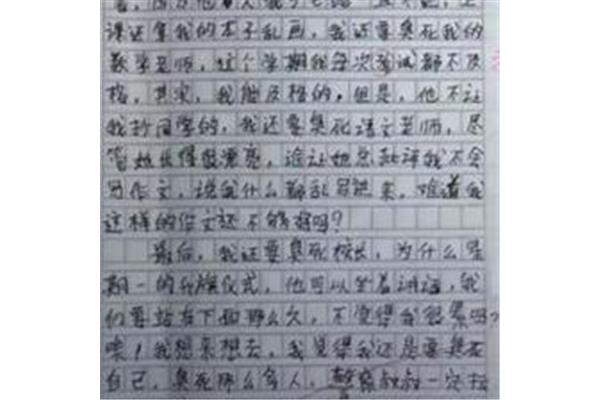 课还拿我的本子乱画,我还要臭死我的
数学老师,这个学期我每次考试都不及
格,其实,我能及格的,但是,他不让
我抄同学的,我还要臭死语文老师,尽
管她长得很漂亮,谁让她总批评我不会
写作文,说我什么都乱写进来,难道我
这样的作文还不够好吗?
最后,我还要臭死校长,为什么星
期一的升旗仪式,他可以坐着讲话,我
们要站在下面那么久,不觉得我很累吗?
唉!我想来想去,我觉得我还是要臭死
自己,臭死那么多人,警察叔叔一定